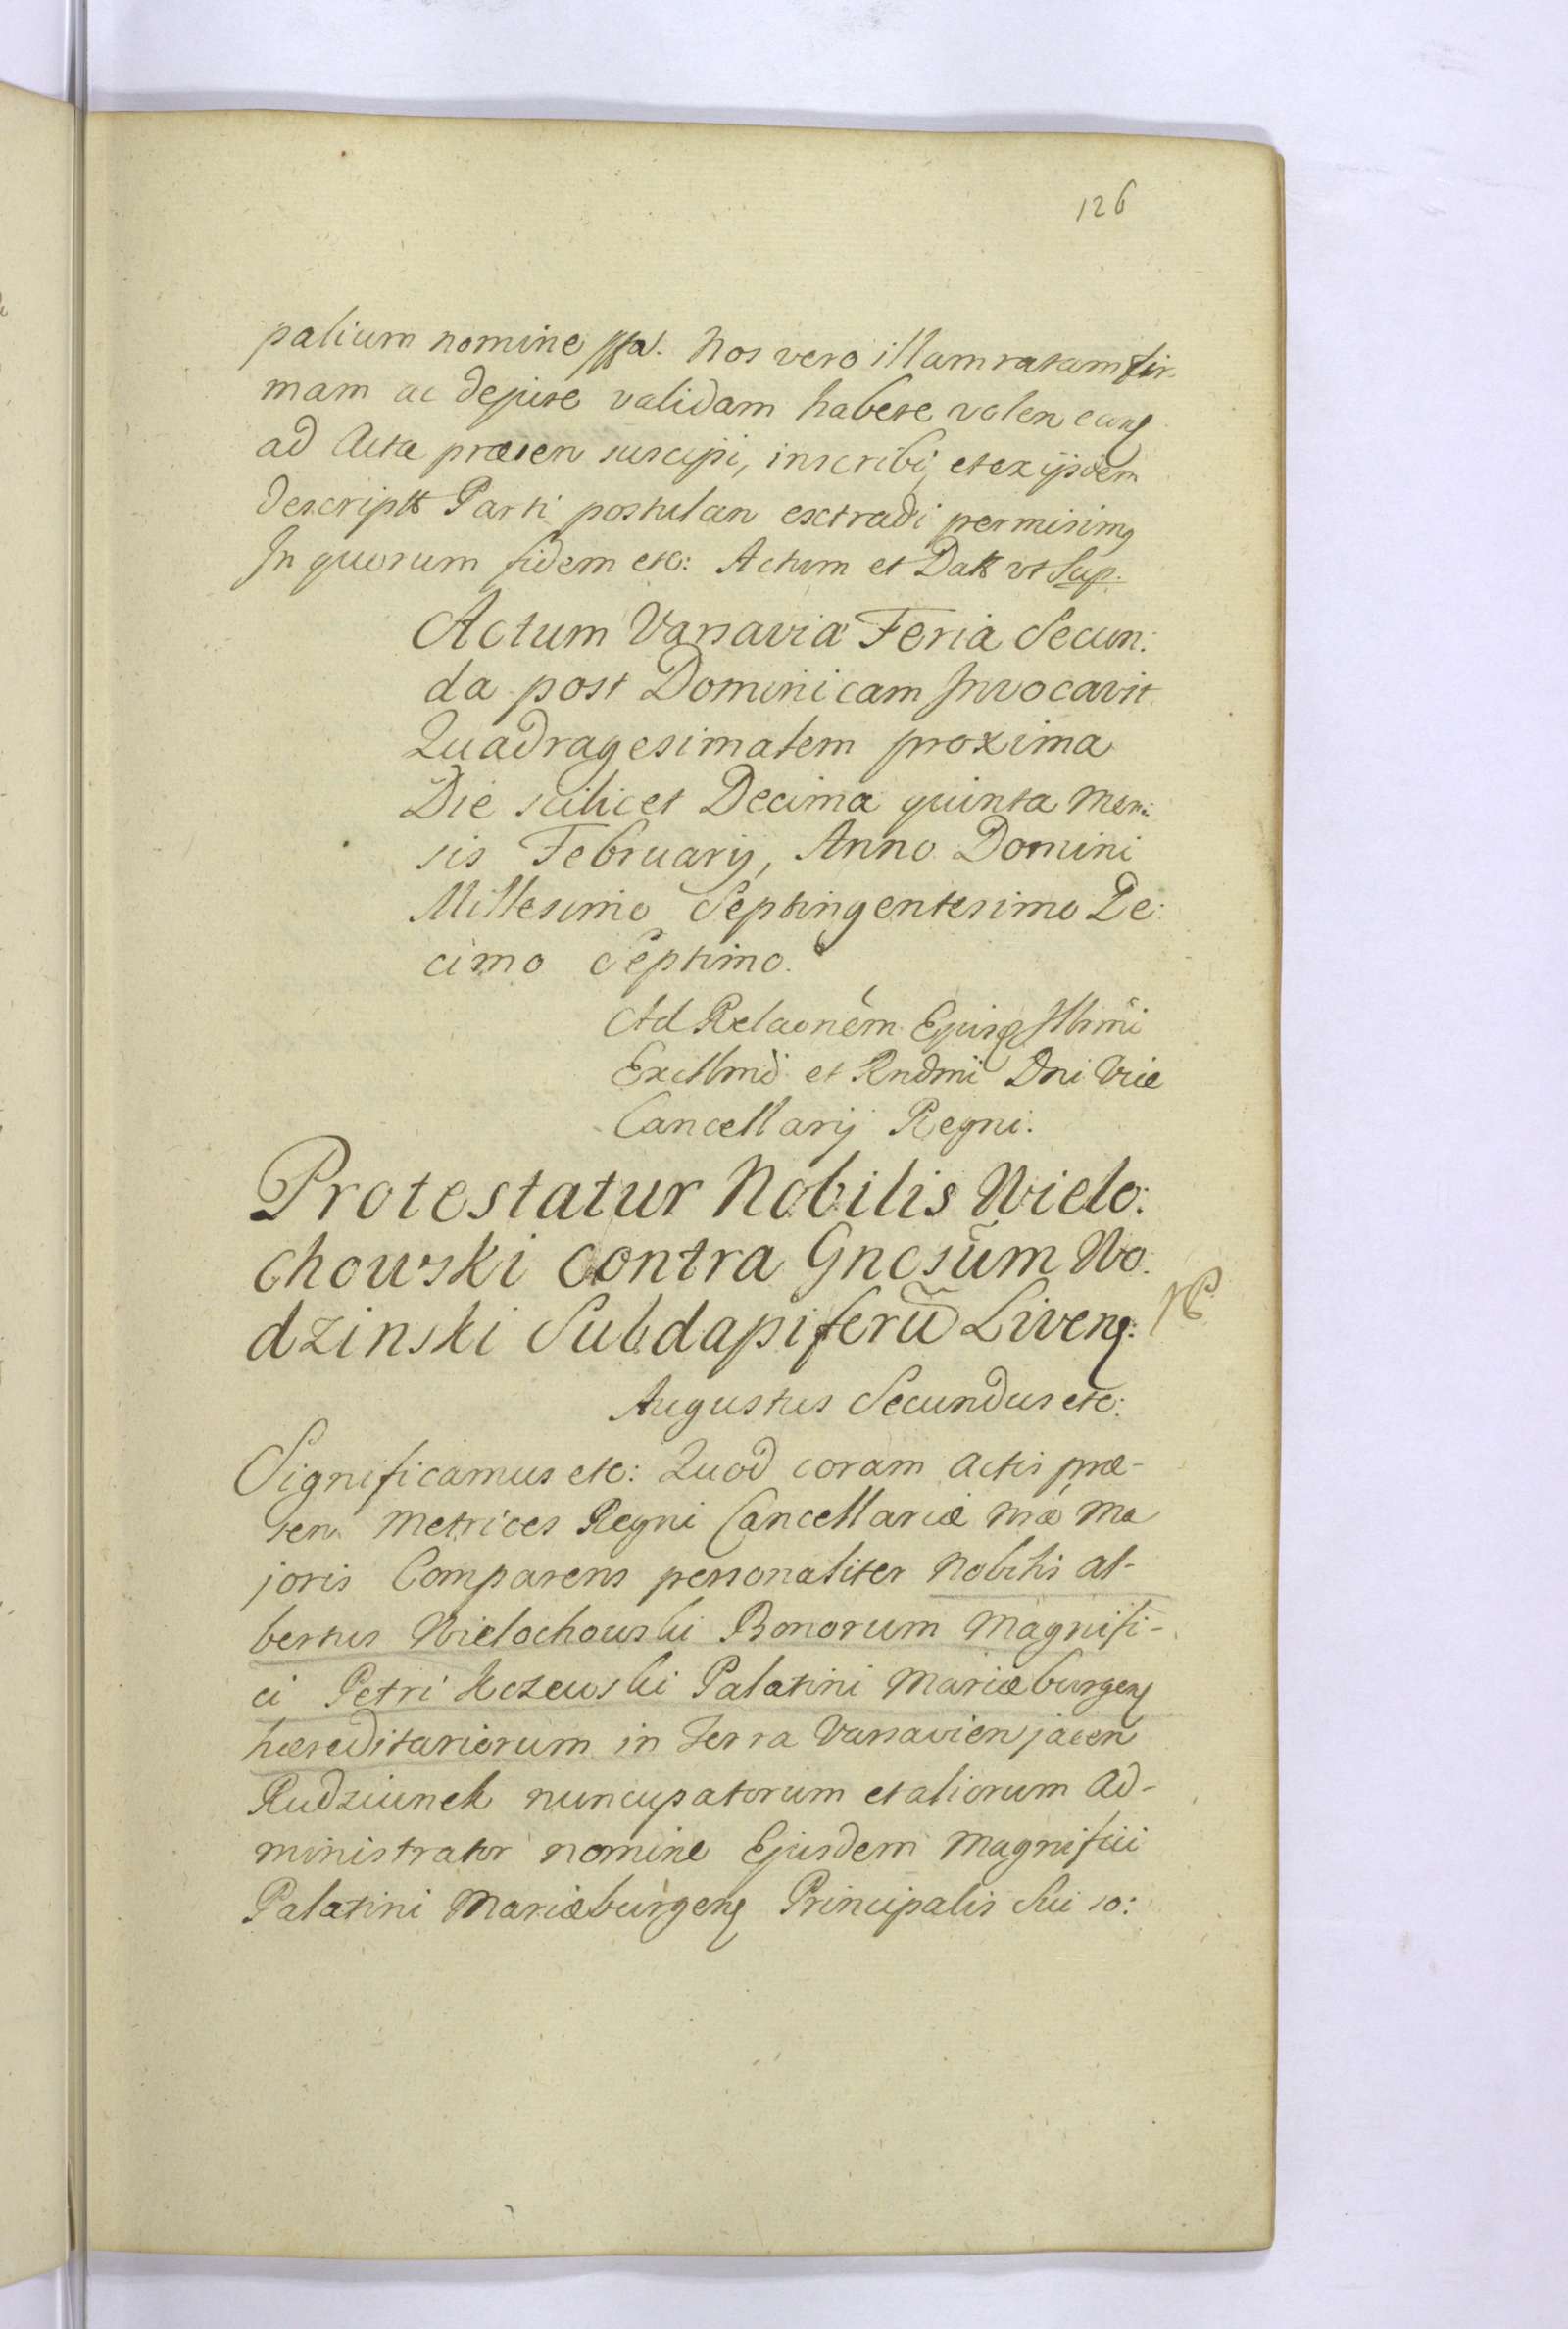 126
palium nomine ssa. Nos vero illam ratam fir-
mam ac dejure validam habere volen eamq
ad Acta præsen suscipi, inscribi, et ex ijsdem
descriptt Parti postulan extradi permisimq
In quorum fidem etc: Actum et Datt ut Sup.
Actum Varsaviæ Feria Secun:
da post Dominicam Invocavit
Quadragesimalem proxima
Die scilicet Decima quinta Men:
sis Februarij, Anno Domini
Millesimo Septingentesimo De:
cimo Septimo.
Ad Relaonem Ejusq Illmi
Excllmi et Rndmi Dni Vice
Cancellarij Regni.
Protestatur Nobilis Wielo:
chowski contra Gnosum Wo:
dzinski Subdapiferū Livenq:
Augustus Secundus etc:
Significamus etc: Quod coram Actis præ-
sen Metrices Regni Cancellariæ nræ Ma
joris Comparens personaliter Nobilis Al-
bertus Wielochowski Bonorum Magnifi-
ci Petri Kczewski Palatini Mariæburgenq
hæreditariorum in Terra Varsavien jacen
Rudziunek nuncupatorum et aliorum Ad-
ministrator nomine Ejusdem Magnifici
Palatini Mariæburgenq Principalis Sui so: